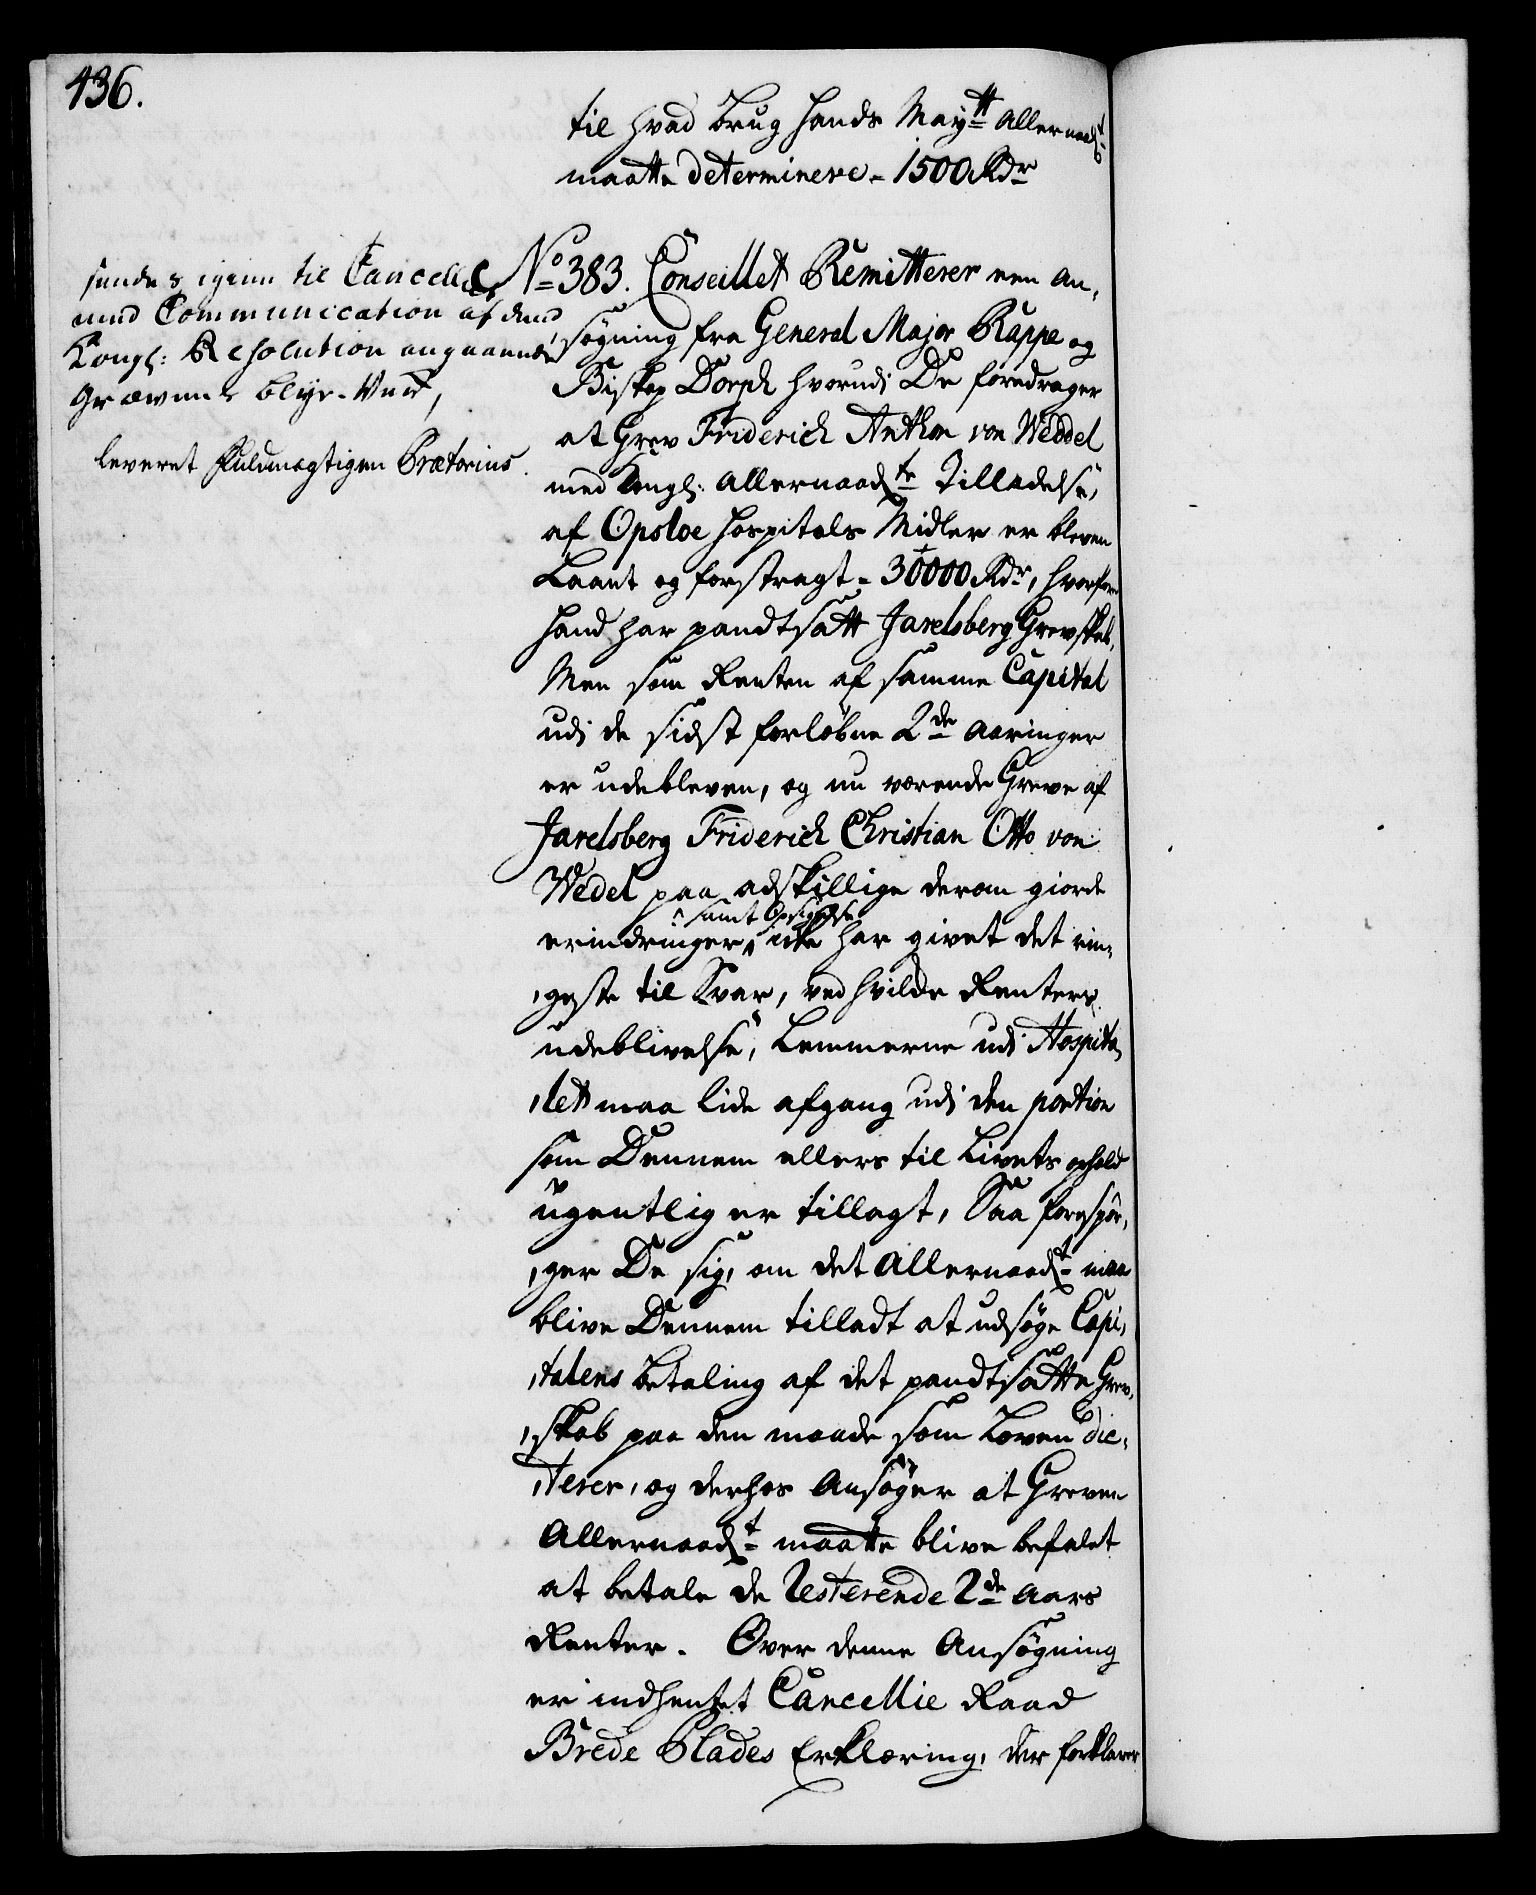 436.
til hvad brug hands Maytt allernaadt
maatte determinere - 1500 Rdr
sendes igien til Cancellie
med Communication af den
Kongl: Resolution angaaende
Grævens blye-Verk,
leveret Fuldmægtigen Prætorius.
No 383. Conseillet Remitterer een An,
,søgning fra General Major Rappe og
Biskop Dorph hvorudi De foredrager
at Grev Friderich Anthon von Weddel
med Kongl: allernaadste Tilladelse,
af Opsloe Hospitals Midler er bleven
Laant og forstragt - 30000 Rdr, hvorfore
hand har pandtsatt Jarelsberg Grevskab,
Men som Renten af samme Capital
udi de sidst forløbne 2de aaringer
er udebleven, og nu værende Greve af
Jarelsberg Friderich Christian Otto von
Wedel paa adskillige derom giorde
samt Opsigelse
erindringer, icke har givet det rin,
,geste til Svar, ved hvilcke Renters
udeblivelse, Lemmerne udi Hospita,
,let maa lide afgang udi den portion
som Dennem ellers til Livets ophold
ugentlig er tillagt, Saa forespør,
,ger De sig, om det allernaadt maa
blive Dennem tilladt at udsøge Capi,
,talens betaling af det pandtsatte Grev,
,skab paa den maade som Loven dic,
,terer, og derhos ansøger at Greven
allernaadt maatte blive befalet
at betale de resterende 2de aars
Renter. Over denne Ansøgning
er indhentet Cancellie Raad
Brede Plades Erklæring, der forklarer